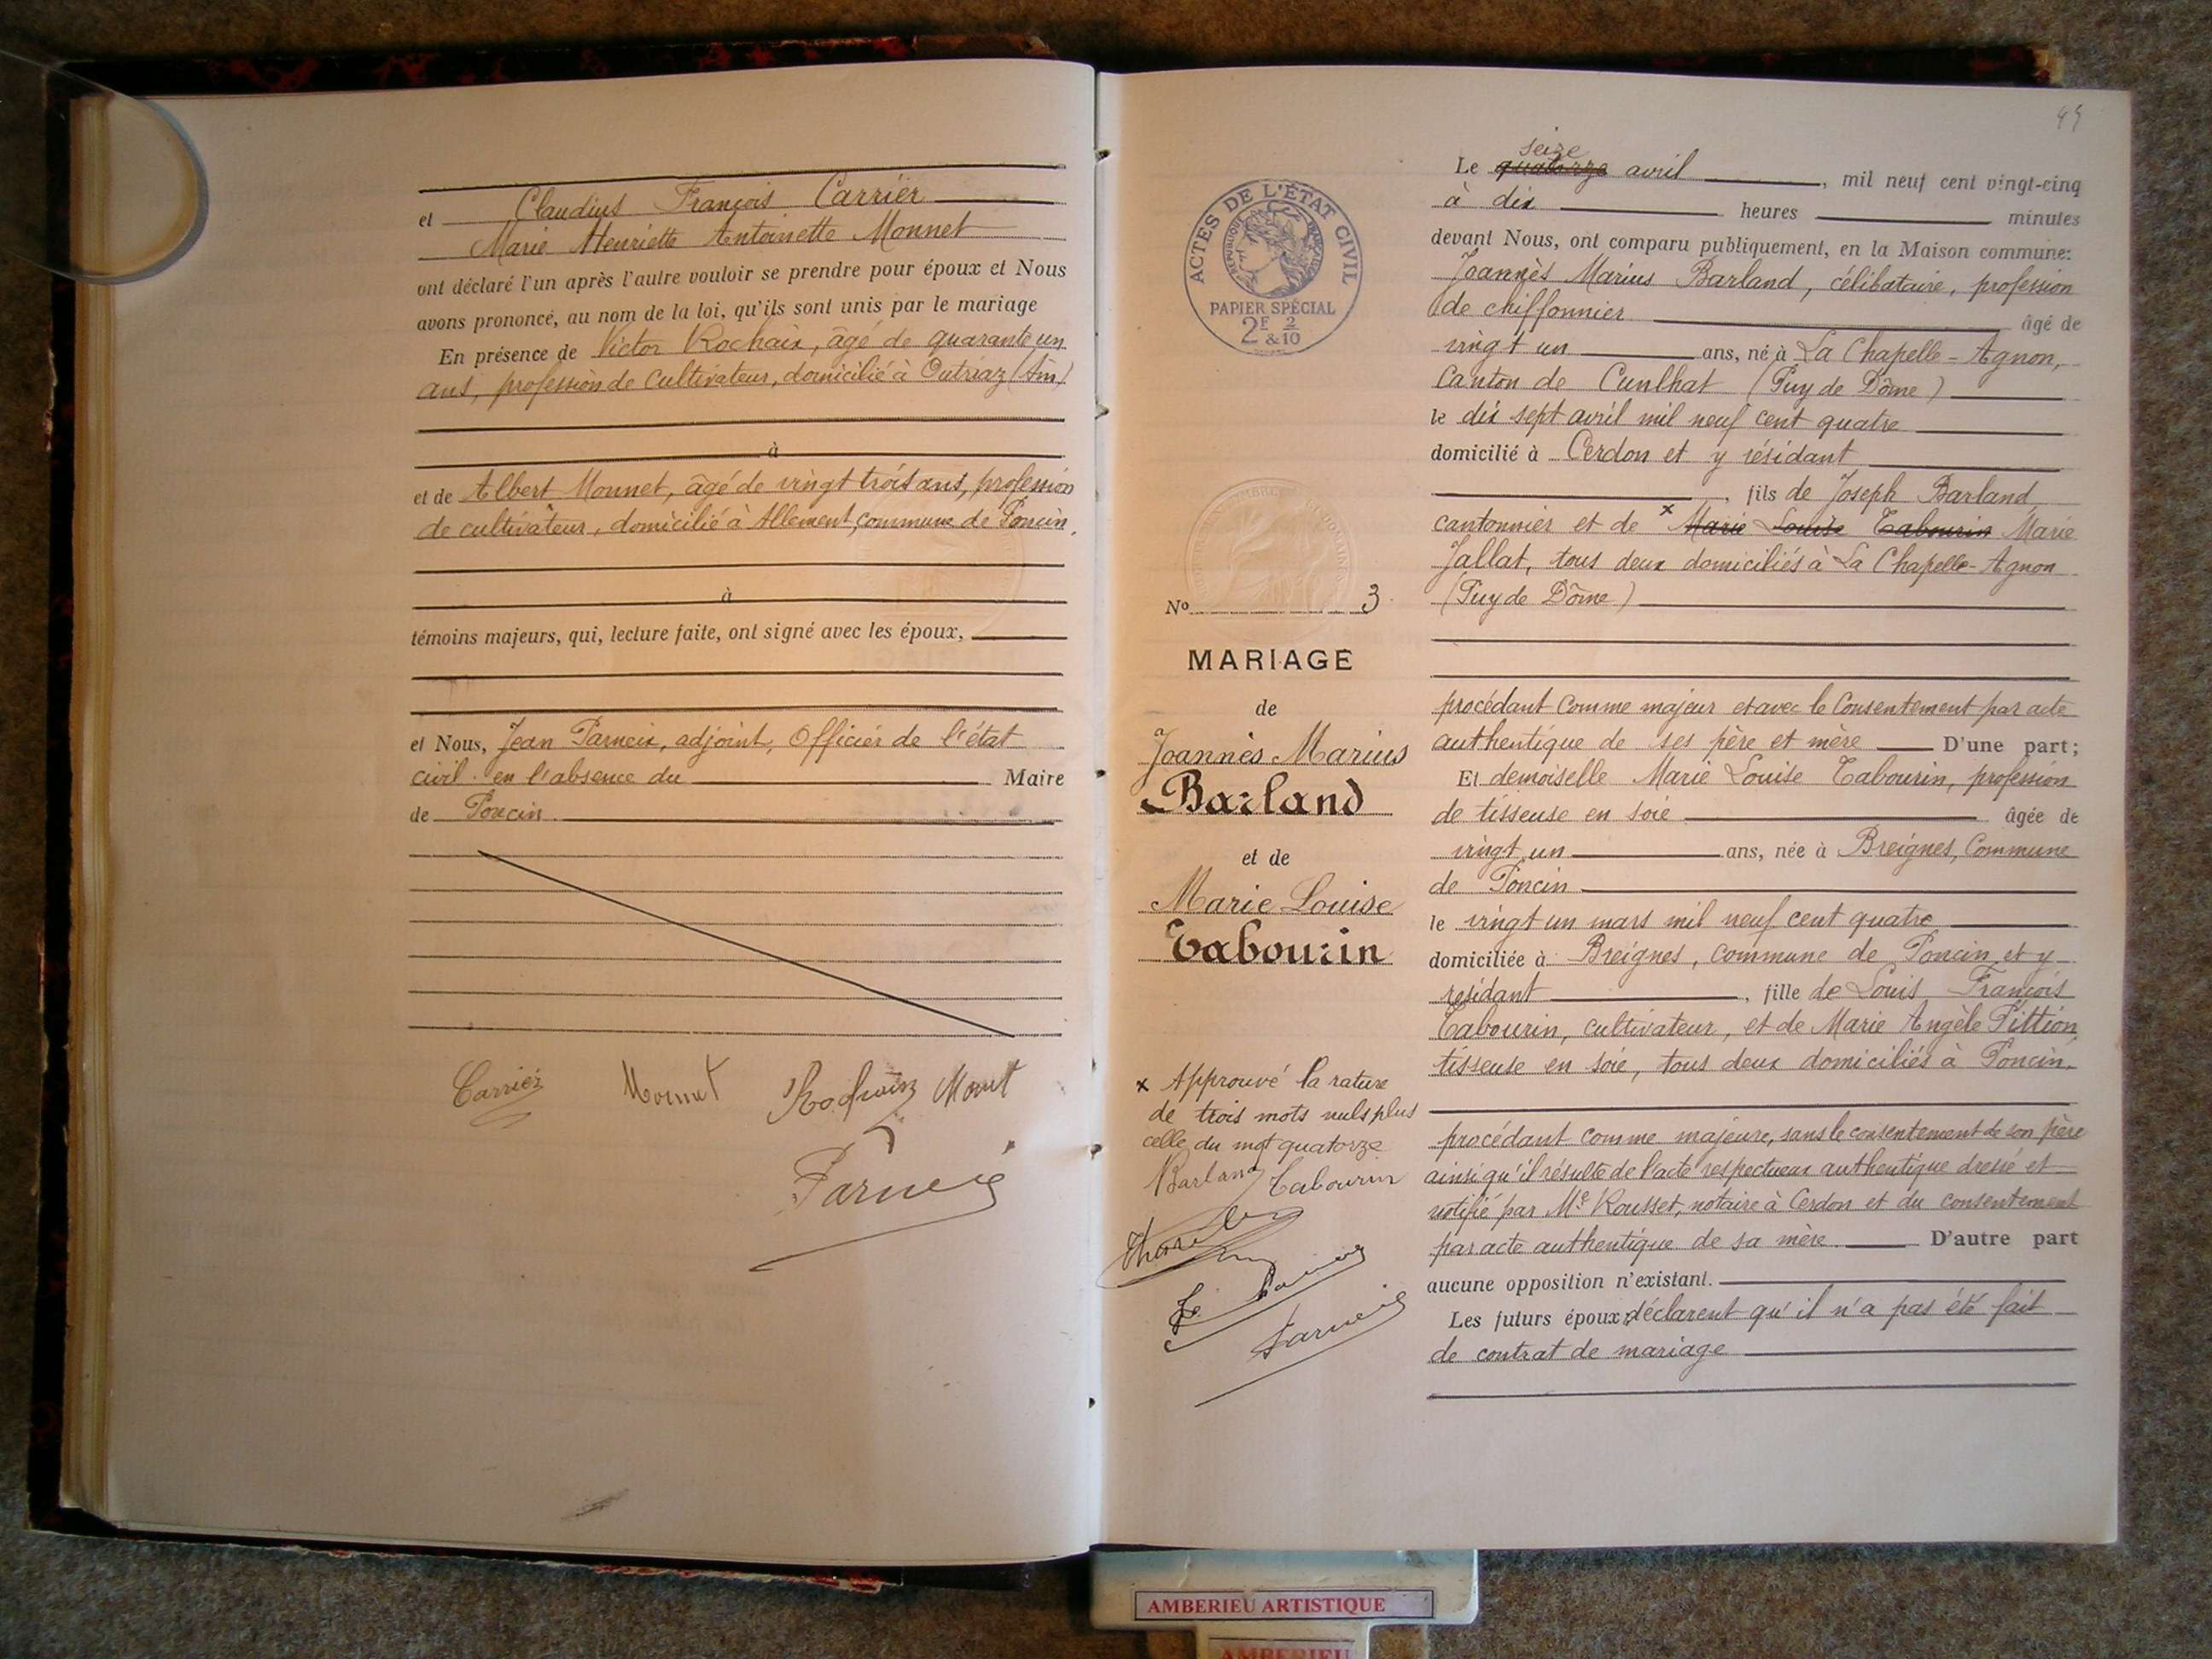 et Claudius François Carrier
Marie Henriette Antoinette Monnet
ont déclaré l'un après l'autre vouloir se prendre pour époux et Nous
avons prononcé, au nom de la loi, qu'ils sont unis par le mariage
En présence de Victor Rochaix, âgé de quarante un
ans, profession de cultivateur, domicilié à Outriaz (Ain)
à
et de Albert Monnet, âgé de vingt trois ans, profession
de cultivateur, domicilié à Allement, commune de Poncin,
à
témoins majeurs, qui, lecture faite, ont signé avec les époux,
et Nous, Jean Parneix, adjoint, Officier de l'état
civil en l'absence du Maire
de Poncin
Carrier Monnet
Parneix
45
ACTES DE L'ÉTAT CIVIL
RÉPUBLIQUE FRANÇAISE
PAPIER SPÉCIAL
2F & 2/10
No 3
MARIAGE
de
Joannès Marius
Barland
et de
Marie Louise
Tabourin
x Approuvé la rature
de trois mots nuls plus
celle du mot quatorze
Barland Tabourin
Parneix
seize
Le quatorze avril, mil neuf cent vingt-cinq
à dix heures minutes
devant Nous, ont comparu publiquement, en la Maison commune:
Joannès Marius Barland, célibataire, profession
de chiffonnier âgé de
vingt un ans, né à La Chapelle-Agnon,
canton de Cunlhat (Puy de Dôme)
le dix sept avril mil neuf cent quatre
domicilié à Cerdon et y résidant
, fils de Joseph Barland
cantonnier et de x Marie Louise Tabourin Marie
Jallat, tous deux domiciliés à La Chapelle-Agnon
(Puy de Dôme)
procédant comme majeur et avec le consentement par acte
authentique de ses père et mère D'une part;
Et demoiselle Marie Louise Tabourin, profession
de tisseuse en soie âgée de
vingt un ans, née à Breignes, Commune
de Poncin
le vingt un mars mil neuf cent quatre
domiciliée à Breignes, commune de Poncin et y
résidant, fille de Louis François
Tabourin, cultivateur, et de Marie Angèle Pittion,
tisseuse en soie, tous deux domiciliés à Poncin.
procédant comme majeure, sans le consentement de son père
ainsi qu'il résulte de l'acte respectueux authentique dressé et
notifié par Me Rousset, notaire à Cerdon et du consentement
par acte authentique de sa mère. D'autre part
aucune opposition n'existant.
Les futurs époux déclarent qu'il n'a pas été fait
de contrat de mariage
AMBERIEU ARTISTIQUE
AMBERIEU